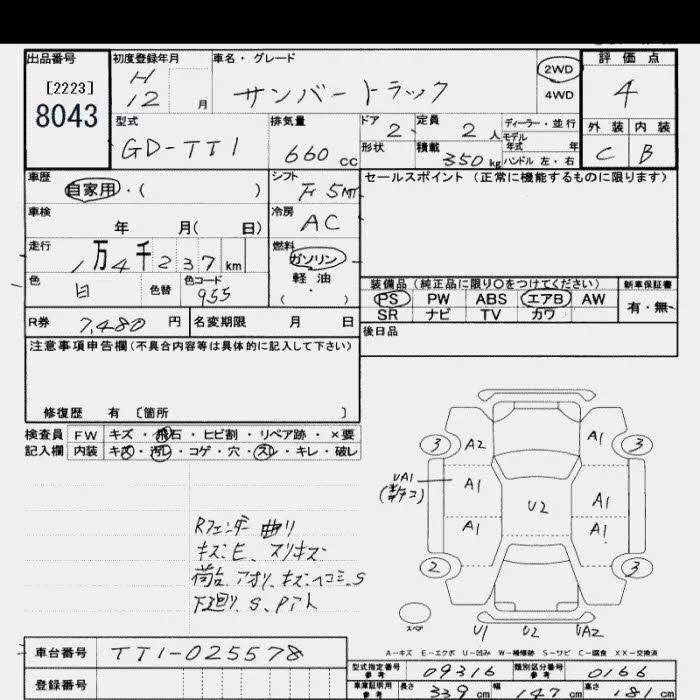 出品番号
[2223]
8043
初度登録年月
H
12 月
車名・グレード
サンバートラック
2WD
4WD
評価点
4
外装 内装
C B
型式
GD-TT1
排気量
660 cc
ドア 2
定員 2 人
形状
積載 350 kg
ディーラー・並行
モデル
年式 年
ハンドル 左・右
車歴
自家用・( )
シフト
Fr 5MT
セールスポイント (正常に機能するものに限ります)
車検
年 月( 日)
冷房
AC
走行
1万4千237 km
燃料
ガソリン
軽油
( ・ )
色
白
色替
色コード
955
装備品 (純正品に限り○をつけてください)
新車保証書
PS PW ABS エアB AW
SR ナビ TV カワ
有・無
R券 7,480 円
名変期限 月 日
後日品
注意事項申告欄(不具合内容等は具体的に記入して下さい)
修復歴 有 〔箇所 〕
検査員
記入欄
FW キズ・飛石・ヒビ割・リペア跡・×要
内装 キズ・汚レ・コゲ・穴・スレ・キレ・破レ
Rフェンダー曲り
キズ、E、スリキズ
荷台、アオリ、キズ、ヘコミ、S
下廻り、S、Pアト
3 A2 A1 3
UA1
A1 U2 A1
A1 A1
2 3
スペア
U1 U2 UA2
A－キズ E－エクボ U－凹み W－補修跡 S－サビ C－腐食 XX－交換済
車台番号 TT1-025578
登録番号
型式指定番号
参考
09316
類別区分番号
参考
0166
車庫証明用
参考
長さ 339 cm 幅 147 cm 高さ 181 cm